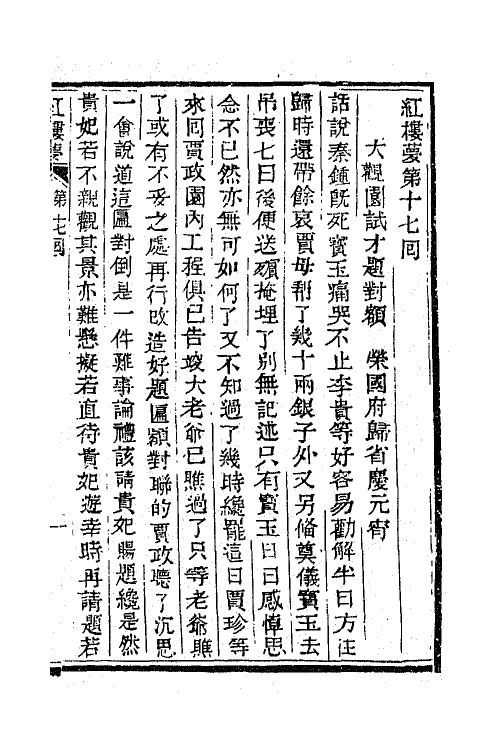 紅樓夢第十七回
大觀園試才題對額　榮國府歸省慶元宵
話說秦鍾既死寳玉痛哭不止李貴等好容易勸解半日方住
歸時還帶餘哀賈母幫了幾十兩銀子外又另俻奠儀寳玉去
吊喪七日後便送殯掩埋了别無記述只有寳玉日日感悼思
念不已然亦無可如何了又不知過了幾時纔罷這日賈珍等
來囘賈政園內工程俱已告竣大老爺已瞧過了只等老爺瞧
了或有不妥之處再行改造好題匾額對聯的賈政聽了沉思
一會說道這匾對倒是一件難事論禮該請貴妃賜題纔是然
貴妃若不親觀其景亦難懸擬若直待貴妃遊幸時再請題若
紅樓夢　第十七囘　一